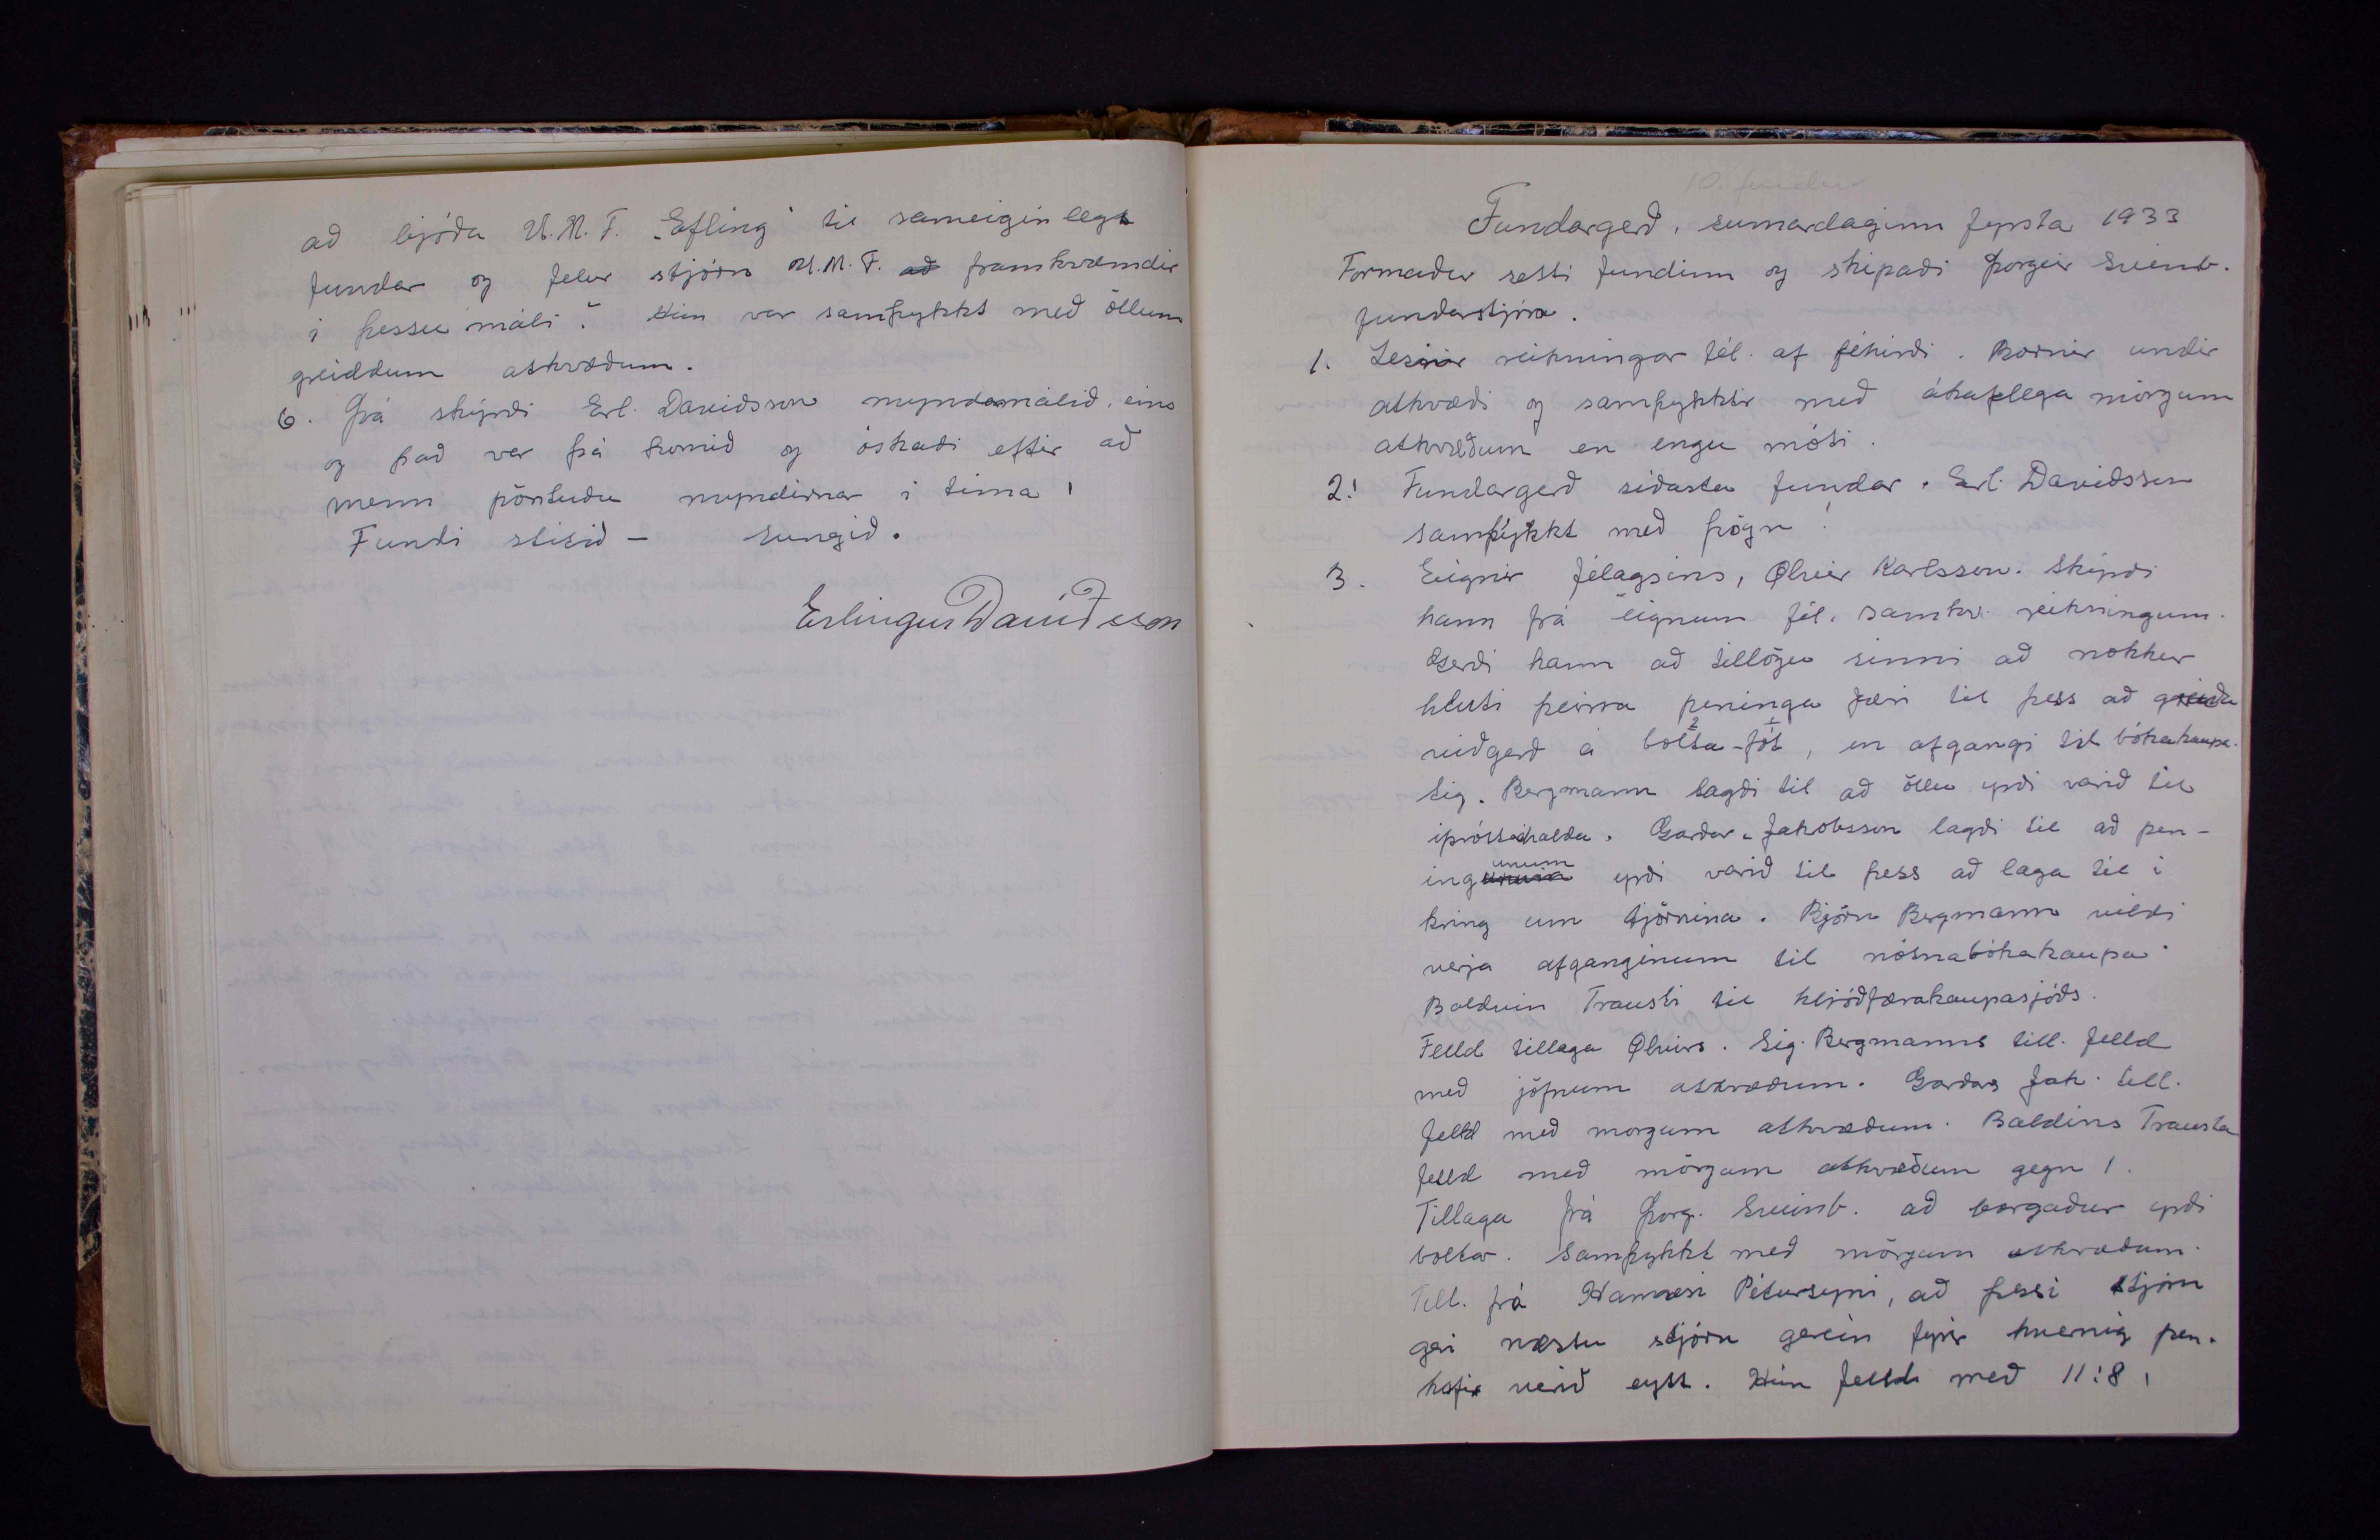 að bjóða U.M.F. „Efling“ til sameiginlegs
fundar og felur stjórn U.M.F. að framkvæmdir
í þessu máli.“ Hún var samþykkt með öllum
greiddum atkvæðum.
6. Þá skýrði Erl. Davíðsson myndamálið, eins
og það var þá komið og óskaði eftir að
menn pöntuðu myndirnar í tíma!
Fundi slitið – sungið.
Erlingur Davíðsson
10. fundur
Fundargerð, sumardaginn fyrsta 1933
Formaður setti fundinn og skipaði Þorgeir Sveinb.
fundarstjóra.
1. Lesnir reikningar fél. af féhirði. Bornir undir
atkvæði og samþykktir með ákaflega mörgum
atkvæðum en engu móti.
2. Fundargerð síðasta fundar. Erl. Davíðsson
samþykkt með þögn!
3. Eignir félagsins, Ölvir Karlsson. Skýrði
hann frá eignum fél. samkv. reikningum.
Gerði hann að tillögu sinni að nokkur
hluti þeirra peninga færi til þess að greiða
viðgerð á bolta-föt, en afgangi til bókakaupa.
2 1
Sig. Bergmann lagði til að öllu yrði varið til
íþróttaáhalda. Garðar Jakobsson lagði til að pen-
ingunum yrði varið til þess að laga til í
kring um tjörnina. Björn Bergmann vildi
verja afganginum til nótnabókakaupa.
Baldvin Trausti til hljóðfærakaupasjóðs.
Felld tillaga Ölvirs. Sig. Bergmanns till. felld
með jöfnum atkvæðum. Garðars Jak. till.
felld með morgum atkvæðum. Baldins Trausta
felld með mörgum atkvæðum gegn 1.
Tillaga frá Þorg. Sveinb. að borgaður yrði
boltar. Samþykkt með mörgum atkvæðum.
Till. frá Hannesi Péturssyni, að þessi stjórn
geri næstu stjórn grein fyrir hvernig pen.
hafi verið eytt. Hún felld með 11:8,